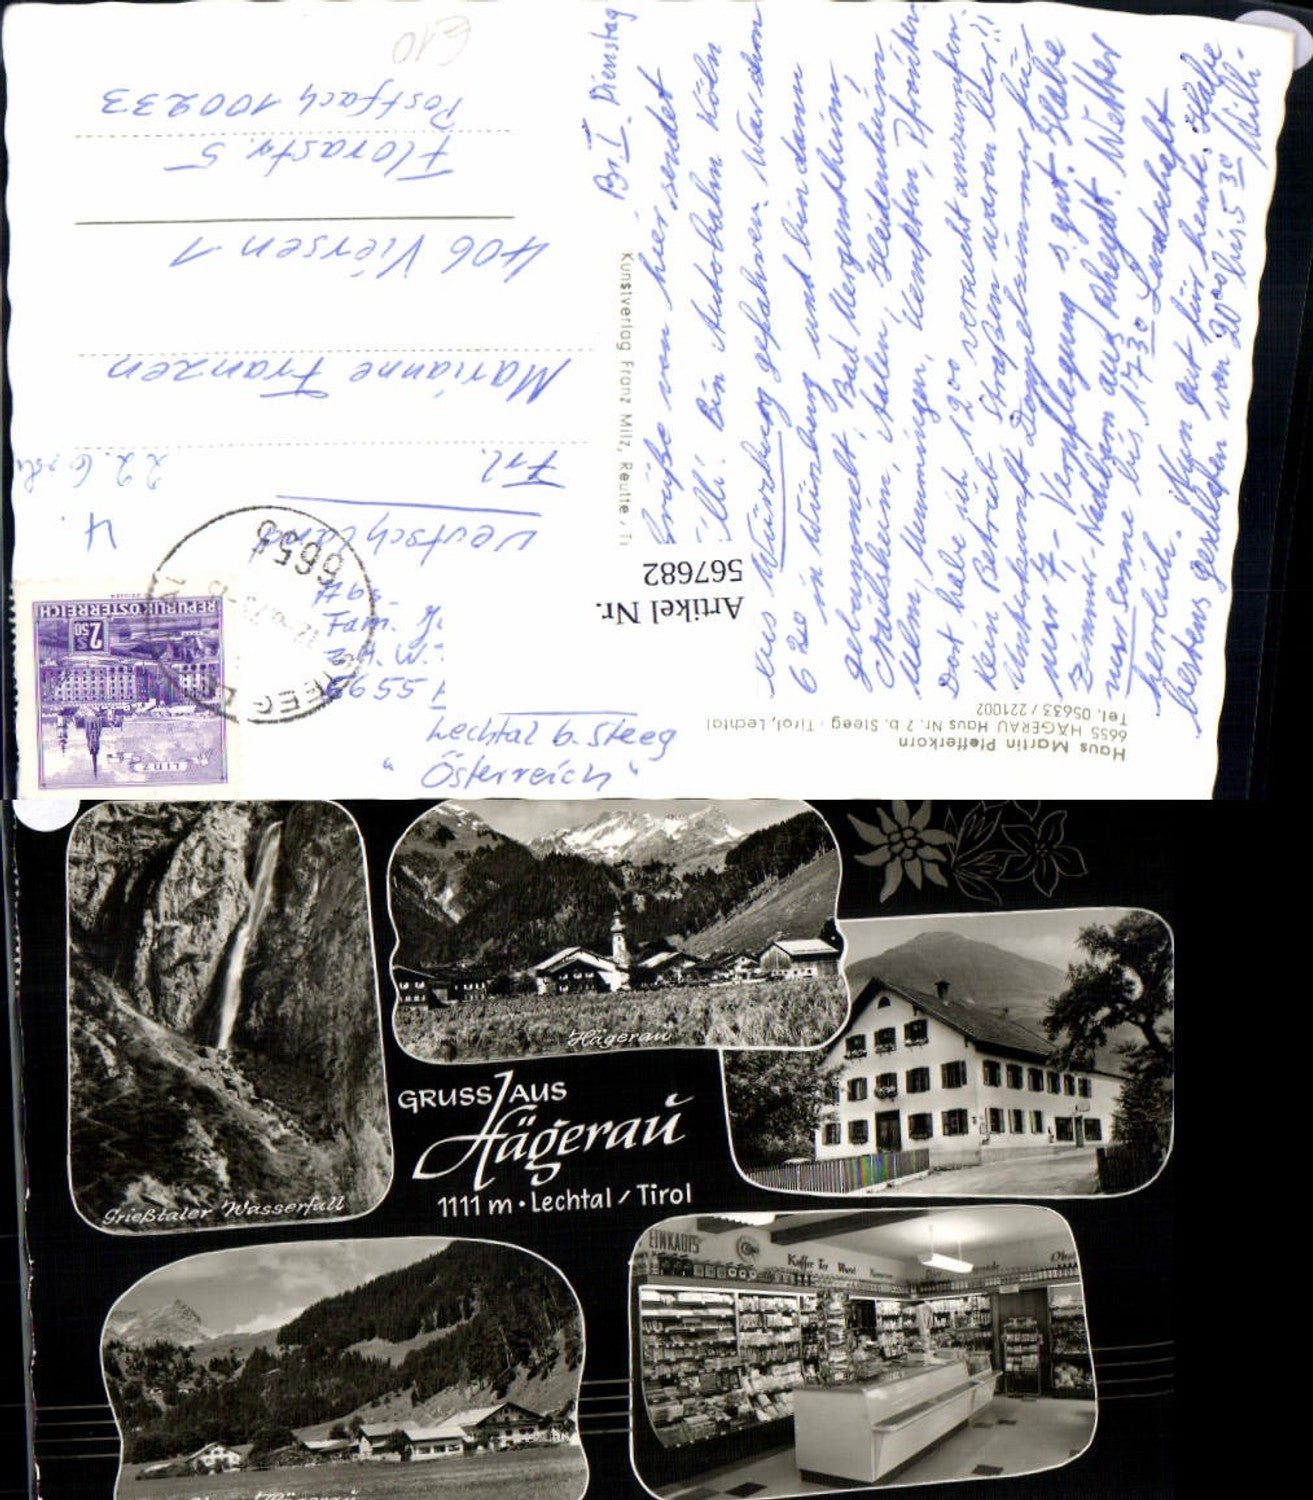 Br I. Dienstag
Grüße von hier sendet
Willi. Bin Autobahn Köln
aus Würzburg gefahren. War dann
6 20 in Würzburg und bin dann
gebummelt, Bad Mergentheim,
Crailsheim, Aalen, Heidenheim
Ulm, Memmingen, Kempten, Pfronten.
Dort habe ich 12 00 versucht anzurufen.
Kein Betrieb Straßen waren leer!!
Unterkunft Doppelzimmer für
nur 7,- Verpflegung s. gut. Habe
Zimmer-Nachbarn aus Rheydt. Wetter
nur Sonne bis 17 30 Landschaft
herrlich. Nun gut für heute. Habe
bestens geschlafen von 20 00 bis 5 30 Willi.
Kunstverlag Franz Milz, Reutte / Ti
Artikel Nr.
567682
Haus Martin Pfefferkorn
6655 HÄGERAU Haus Nr. 7 b. Steeg - Tirol, Lechtal
Tel. 05633 / 221002
"Österreich"
Lechtal b. Steeg
A 5595
Fam.
LINZ
S 2.50
REPUBLIK ÖSTERREICH
STEEG
6655
Deutschland
Frl.
Marianne Franzen
406 Viersen 1
Florastr. 5
Postfach 100233
€10
Hägerau
GRUSS AUS
Hägerau
1111 m · Lechtal / Tirol
Grießtaler Wasserfall
EINKAUFS
Kaffee Tee Wurst
Obst
Hägerau